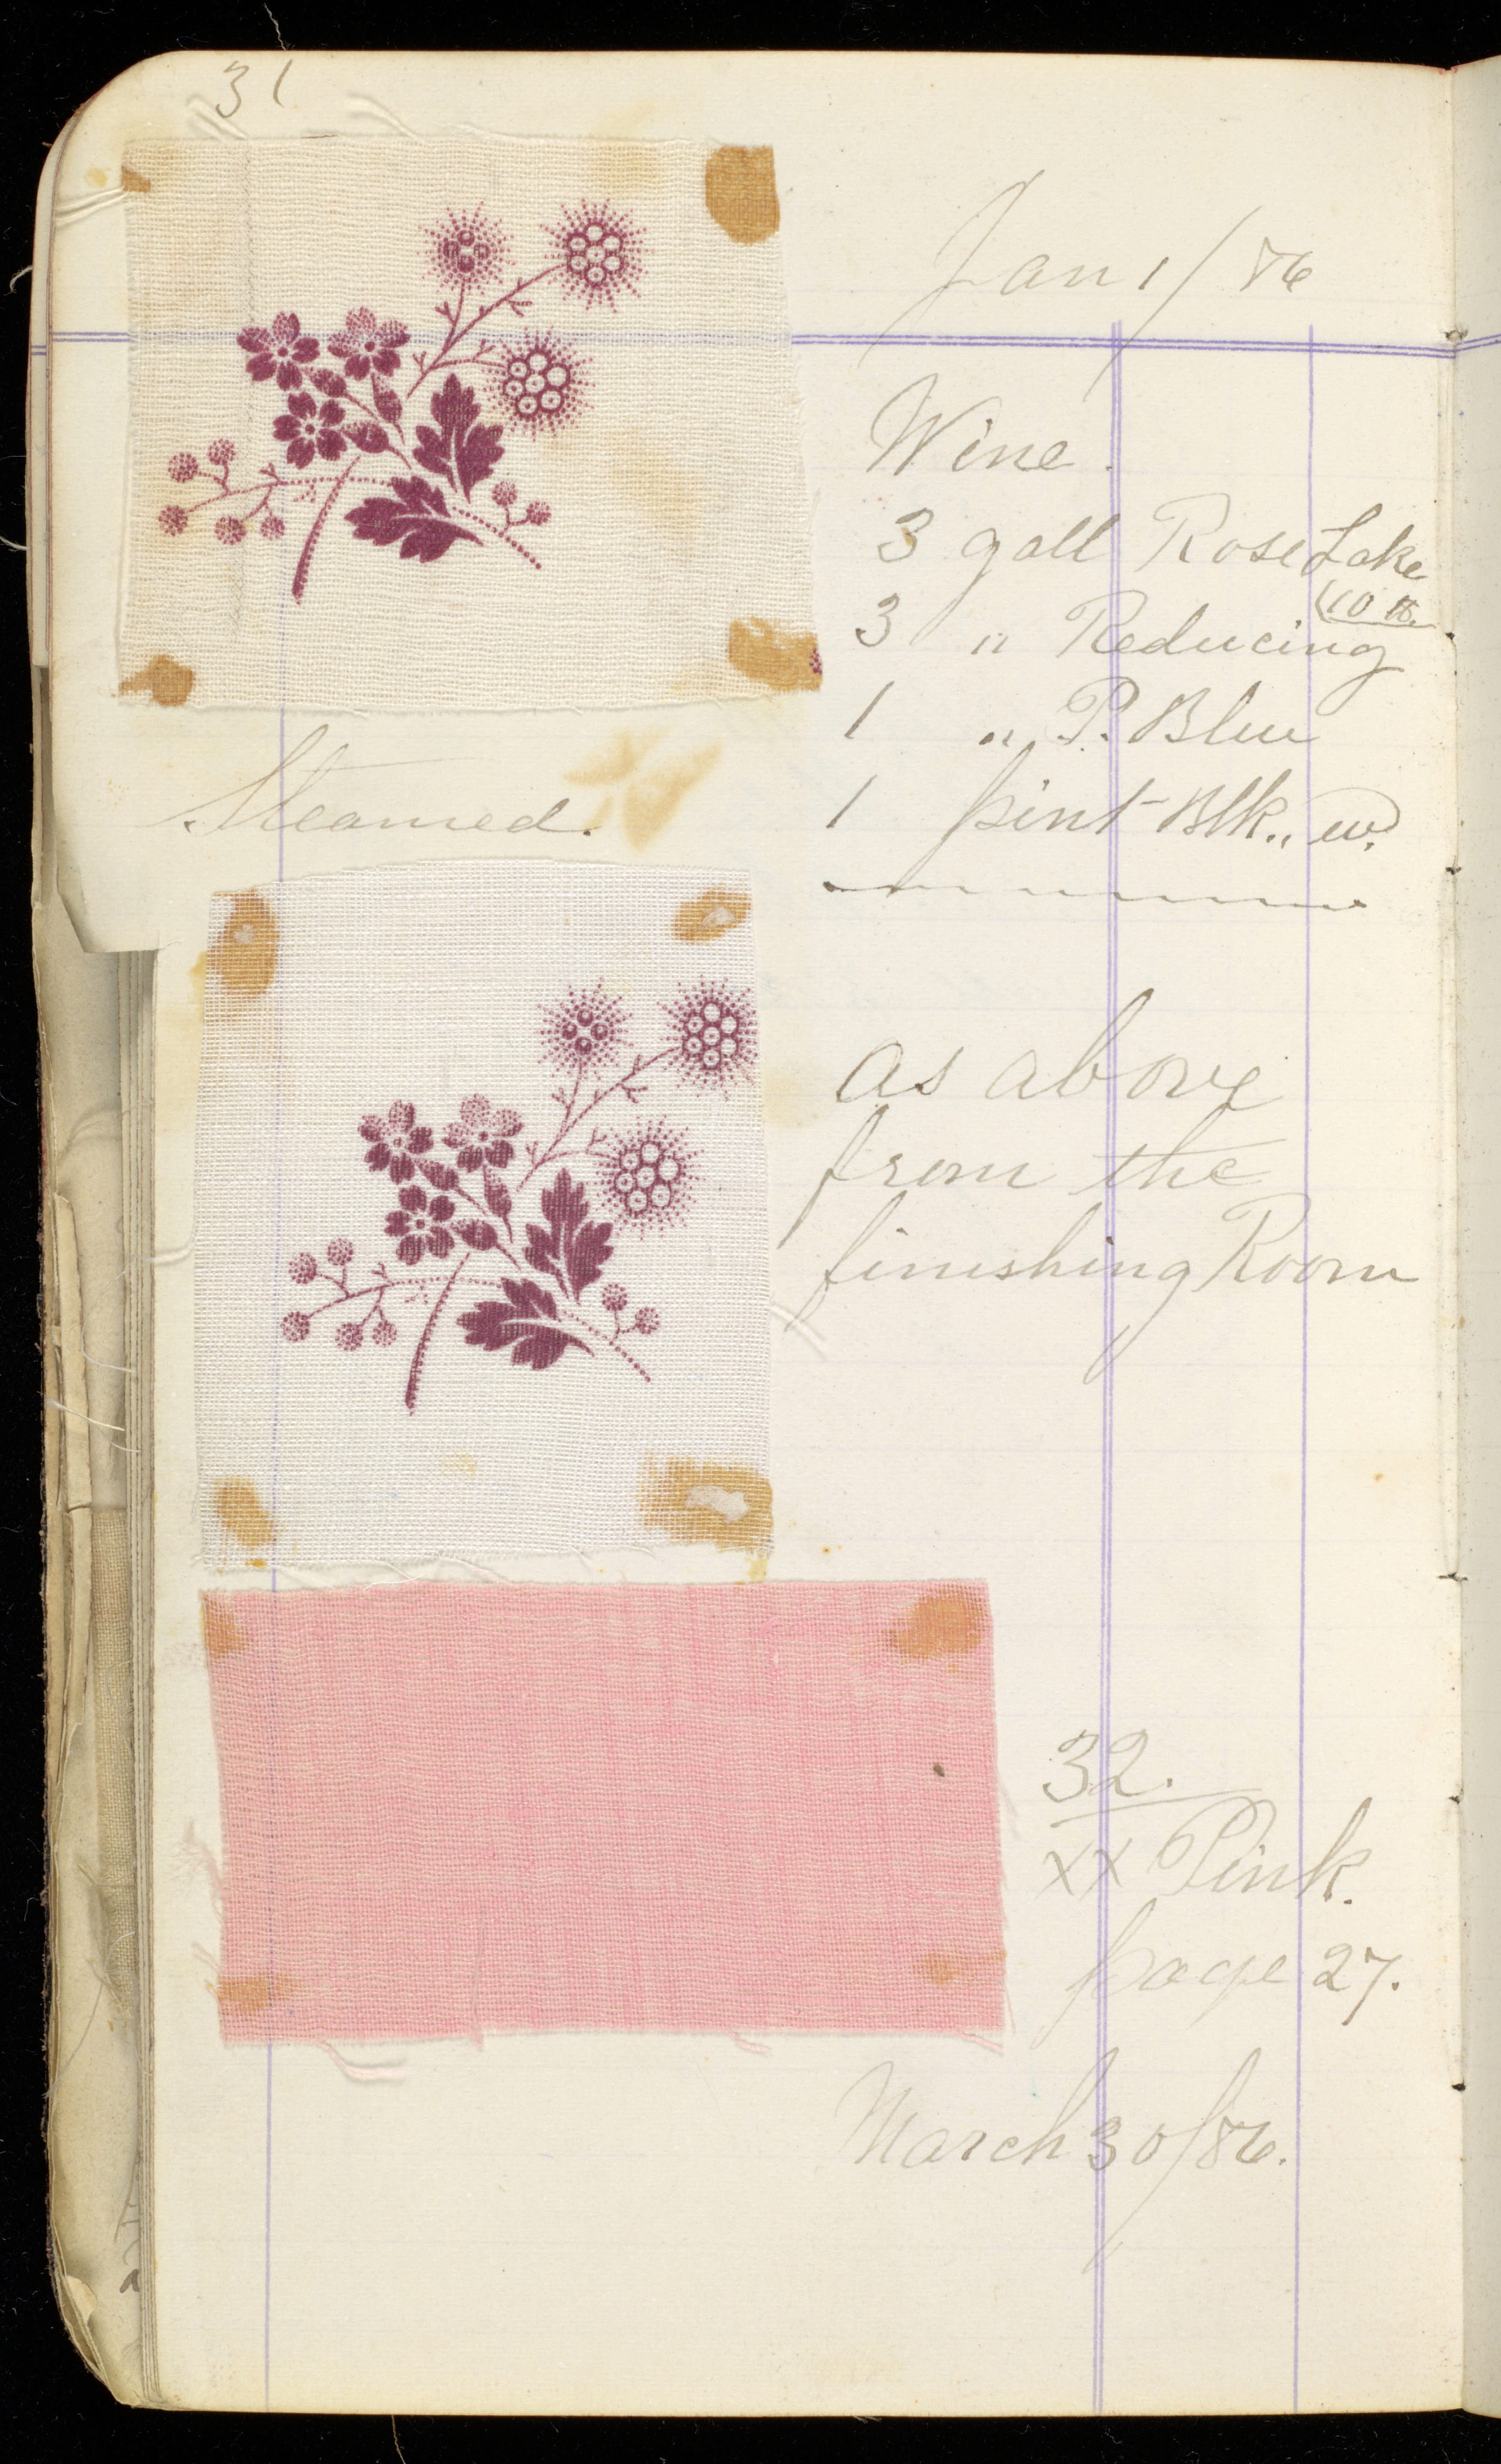 31
Jan 1/86
Wine.
3 gall Rose Lake
(10 lb.
3 " Reducing
1 " P. Blue
1 pint Blk., W.
Steamed.
as above
from the
finishing Room
32.
XX Pink.
page 27.
March 30/86.